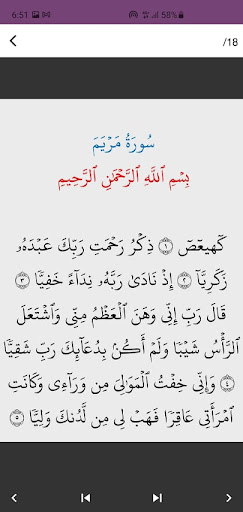 6:51 58%
/18
سُورَةُ مَرْيَمَ
بِسْمِ ٱللَّهِ ٱلرَّحْمَٰنِ ٱلرَّحِيمِ
كٓهيعٓصٓ ١ ذِكْرُ رَحْمَتِ رَبِّكَ عَبْدَهُۥ
زَكَرِيَّآ ٢ إِذْ نَادَىٰ رَبَّهُۥ نِدَآءً خَفِيًّا ٣
قَالَ رَبِّ إِنِّى وَهَنَ ٱلْعَظْمُ مِنِّى وَٱشْتَعَلَ
ٱلرَّأْسُ شَيْبًا وَلَمْ أَكُنۢ بِدُعَآئِكَ رَبِّ شَقِيًّا
٤ وَإِنِّى خِفْتُ ٱلْمَوَٰلِىَ مِن وَرَآءِى وَكَانَتِ
ٱمْرَأَتِى عَاقِرًا فَهَبْ لِى مِن لَّدُنكَ وَلِيًّا ٥